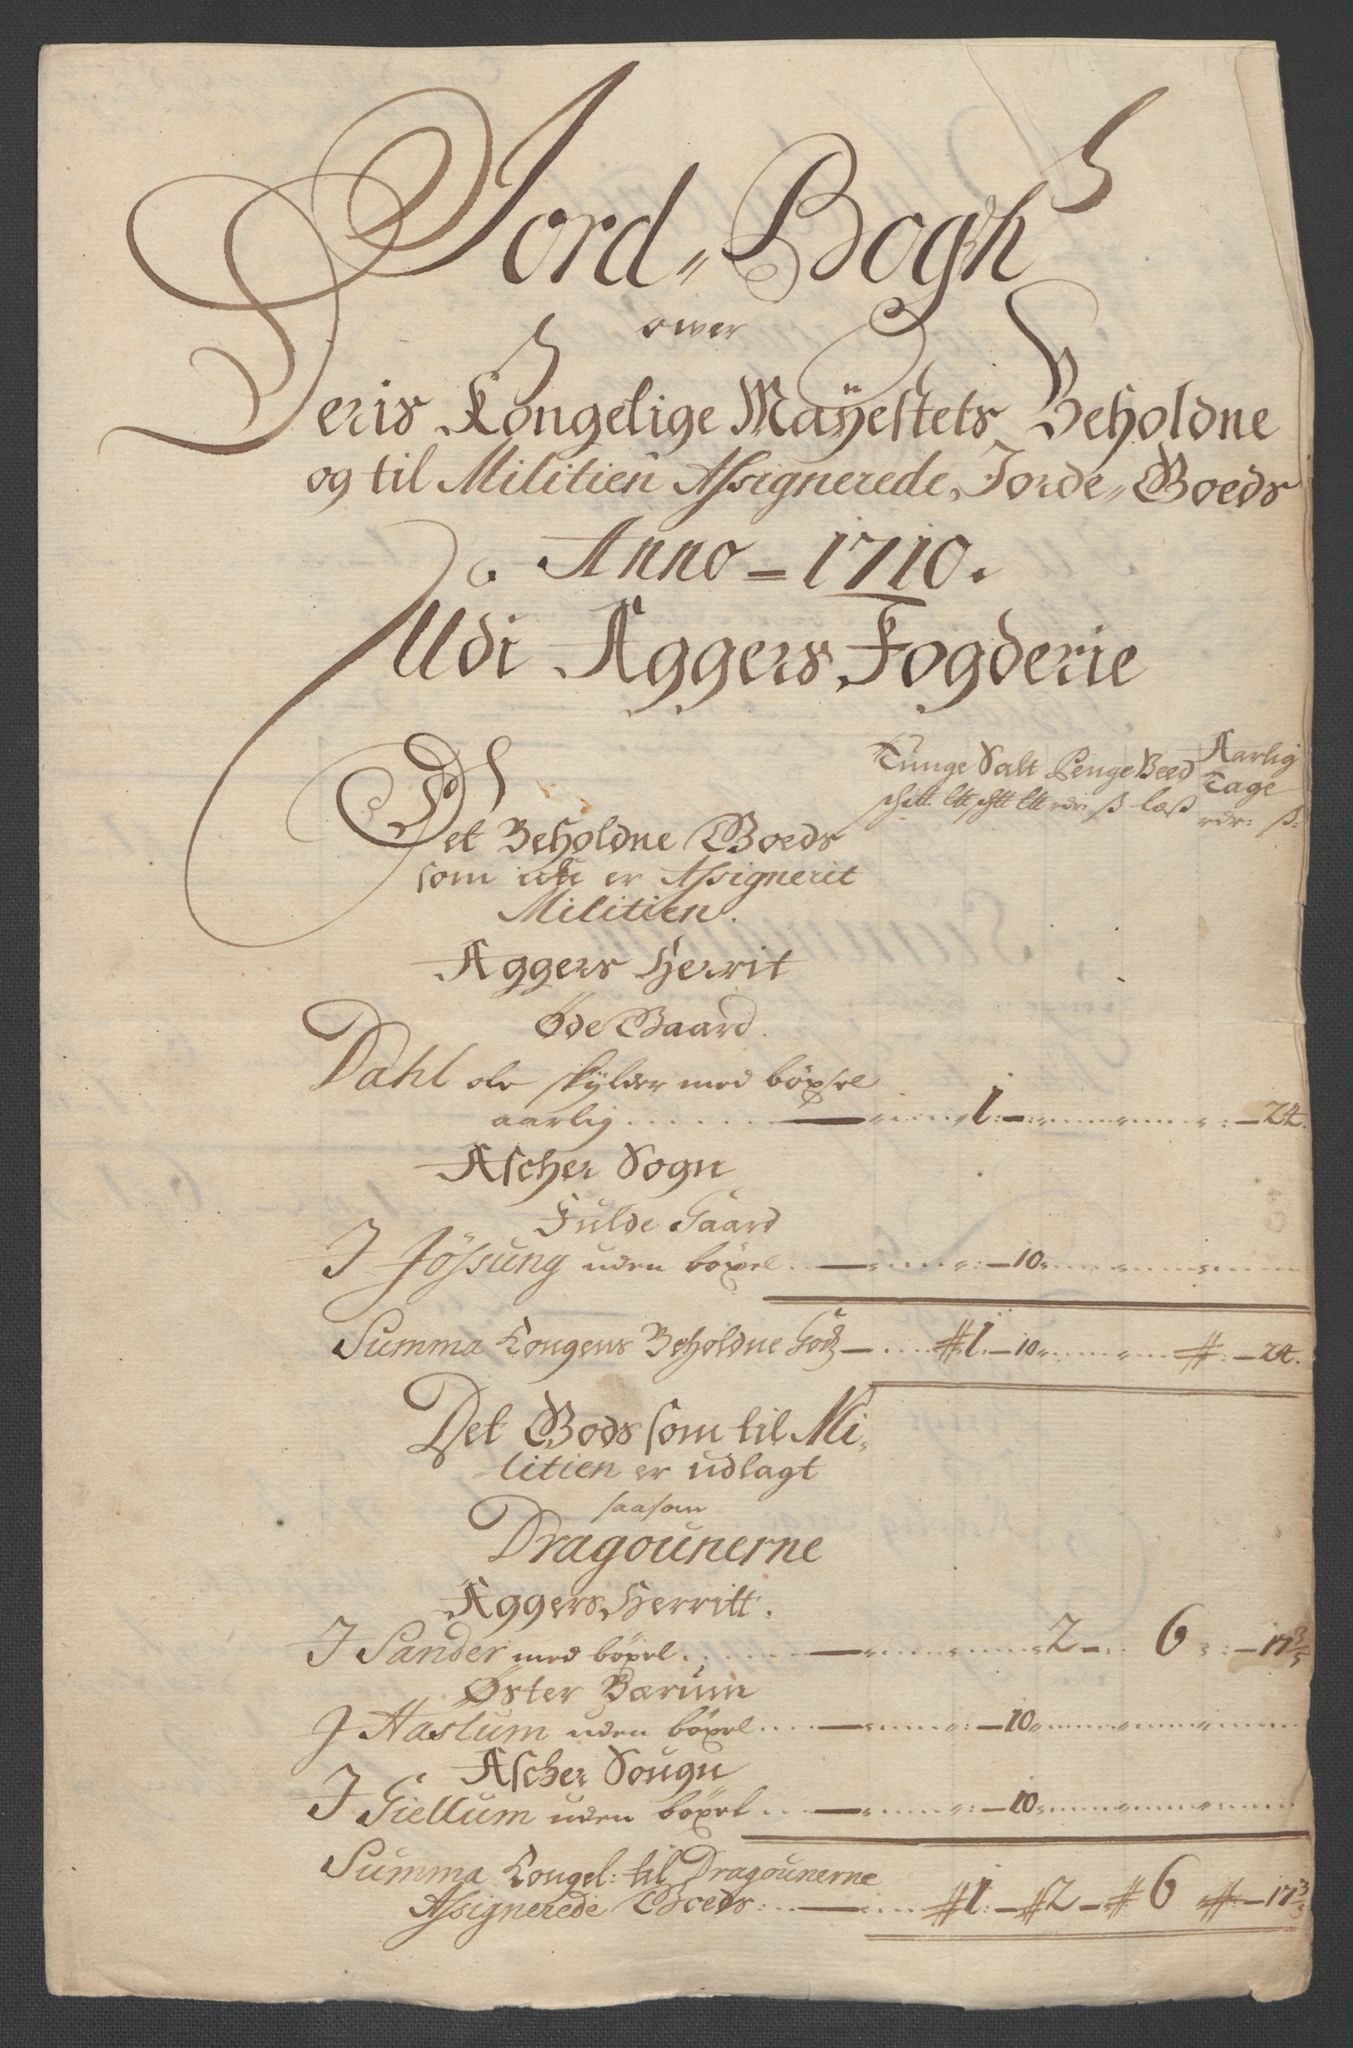 Jord-Bogh
over
Deris Kongelige Mayestets Beholdne
og til Militien Assignerede Jorde-Goeds
Anno - 1710.
Udi Aggers Fogderie
Tunge Salt Penge Veed Aarlig
Tage
schtt: ltt schtt ltt rdr: ß læß rdr: ß:
Det Beholdne Goeds
som icke er Assignerit
Militien.
Aggers Herrit
Øde Gaard.
Dahl ole skylder med böxsel
aarlig ... 1 - 24.
Ascher Sogn
Fulde Gaard
J Jössung uden böxel. - 10
Summa Kongens Beholdne Godz - # 1 - 10 # - 24.
Det Gods som til Mi-
litien er udlagt
saasom
Dragounerne
Aggers Herritt.
J Sander med böxel. - 2 - 6 - 17 3/5
Øster Bærum
J Haslum uden böxel - 10
Ascher Sougn
J Giellum uden böxel - 10
Summa Kongel: til Dragounerne
Assignerede Goeds: - # 1 - # 2 - # 6 # - 17 3/5